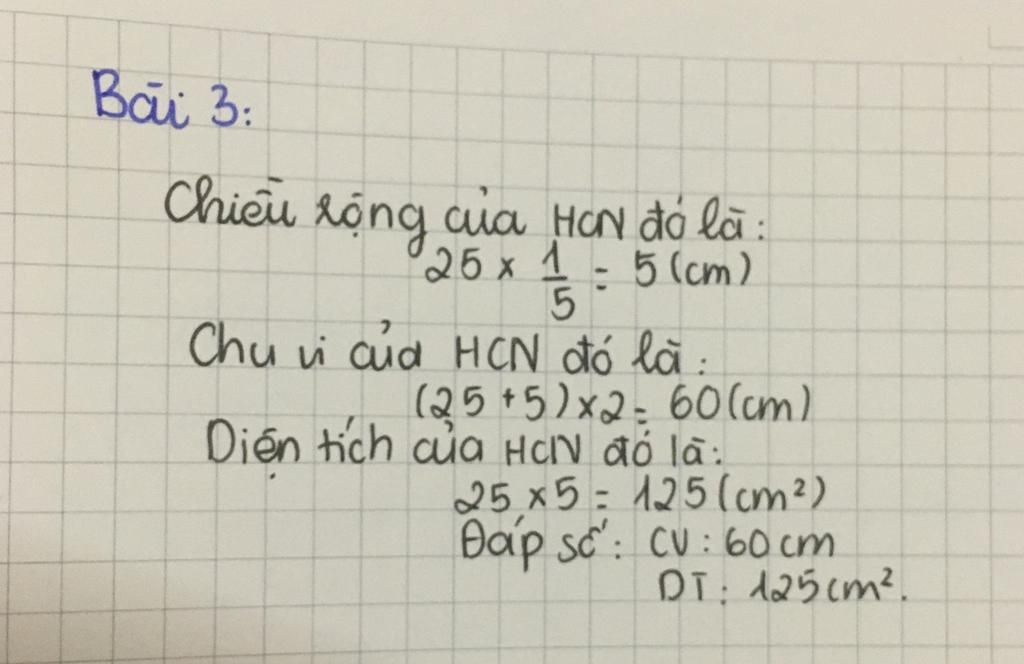 Bài 3:
Chiều rộng của HCN đó là:
25 × 1/5 = 5 (cm)
Chu vi của HCN đó là:
(25 + 5) × 2 = 60 (cm)
Diện tích của HCN đó là:
25 × 5 = 125 (cm²)
Đáp số: CV: 60 cm
DT: 125 cm².